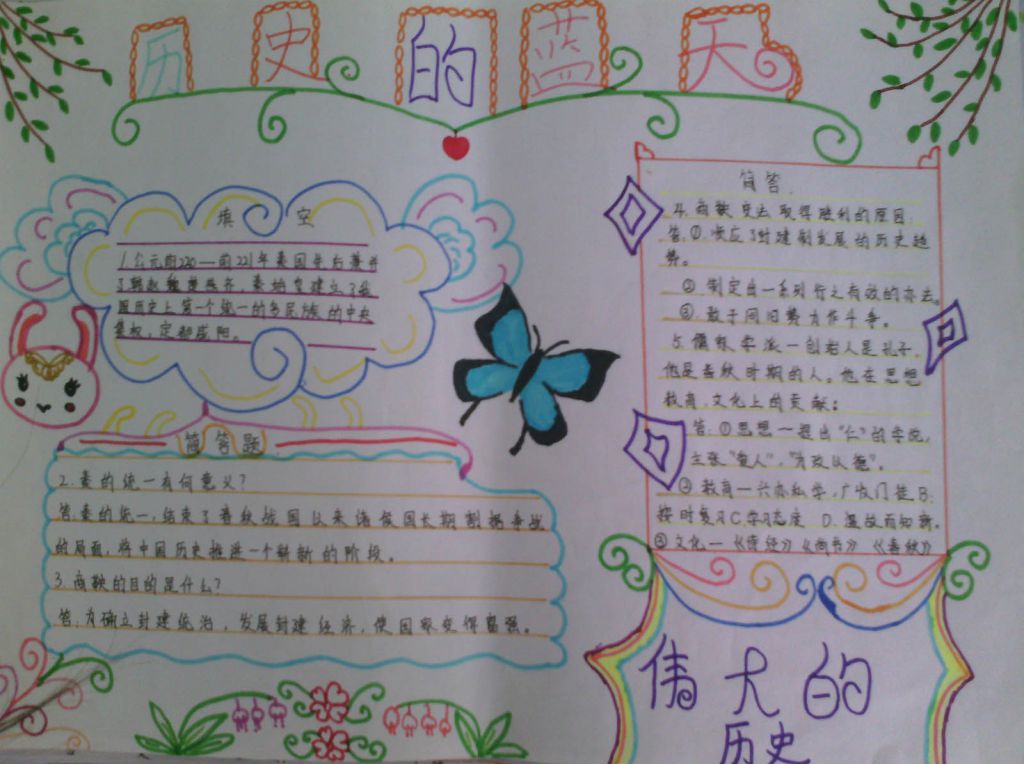 历史的蓝天
填空
1.公元前230—前221年秦国先后兼并
了韩赵魏楚燕齐，秦始皇建立了我
国历史上第一个统一的多民族的中央
集权，定都咸阳。
简答题
2.秦的统一有何意义？
答:秦的统一，结束了春秋战国以来诸侯国长期割据争战
的局面，将中国历史推进一个崭新的阶段。
3.商鞅的目的是什么？
答:为确立封建统治，发展封建经济，使国家变得富强。
简答
4.商鞅变法取得胜利的原因:
答:①顺应了封建制发展的历史趋
势。
②制定出一系列行之有效的办法。
③敢于同旧势力作斗争。
5.儒家学派一创始人是孔子，
他是春秋时期的人。他在思想
教育，文化上的贡献:
答:①思想一提出“仁”的学说，
主张“爱人”，“为政以德”。
②教育一兴办私学，广收门徒B:
按时复习C.学习态度 D.温故而知新。
③文化一《诗经》《尚书》《春秋》
伟大的
历史